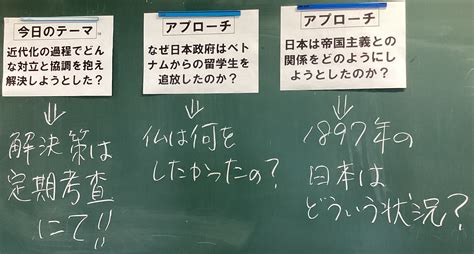 今日のテーマ
近代化の過程でどん
な対立と協調を抱え
解決しようとした？
⇓
解決策は
定期考査
にて!!
アプローチ
なぜ日本政府はベト
ナムからの留学生を
追放したのか？
⇓
仏は何を
したかったの？
アプローチ
日本は帝国主義との
関係をどのようにし
ようとしたのか？
⇓
1897年の
日本は
どういう状況？